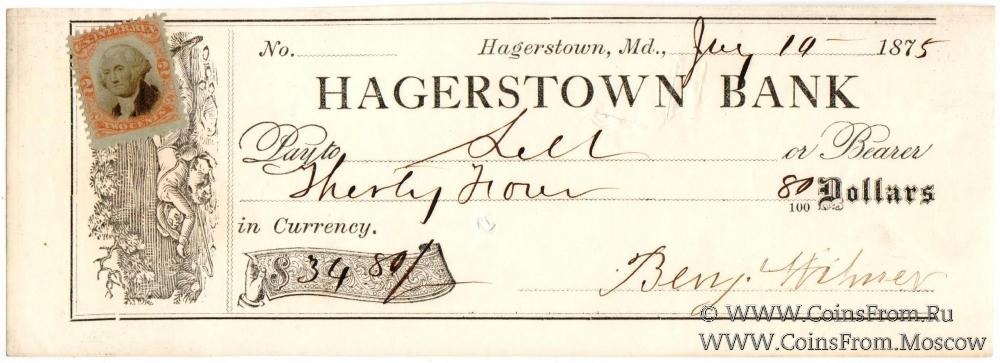 U.S. INTER. REV.
TWO CENTS
No. Hagerstown, Md., July 19 1875
HAGERSTOWN BANK
Pay to Self or Bearer
Thirty Four 80/100 Dollars
in Currency.
$ 34 80/
Benj. Wilmer
© WWW.CoinsFrom.Ru
WWW.CoinsFrom.Moscow